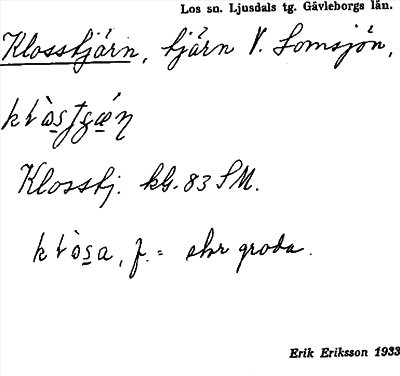 Los sn. Ljusdals tg. Gävleborgs län.
Klosstjärn, tjärn V. Lomsjön,
Klosstj. kbl. 83 SM.
f. = skr groda.
Erik Eriksson 1933